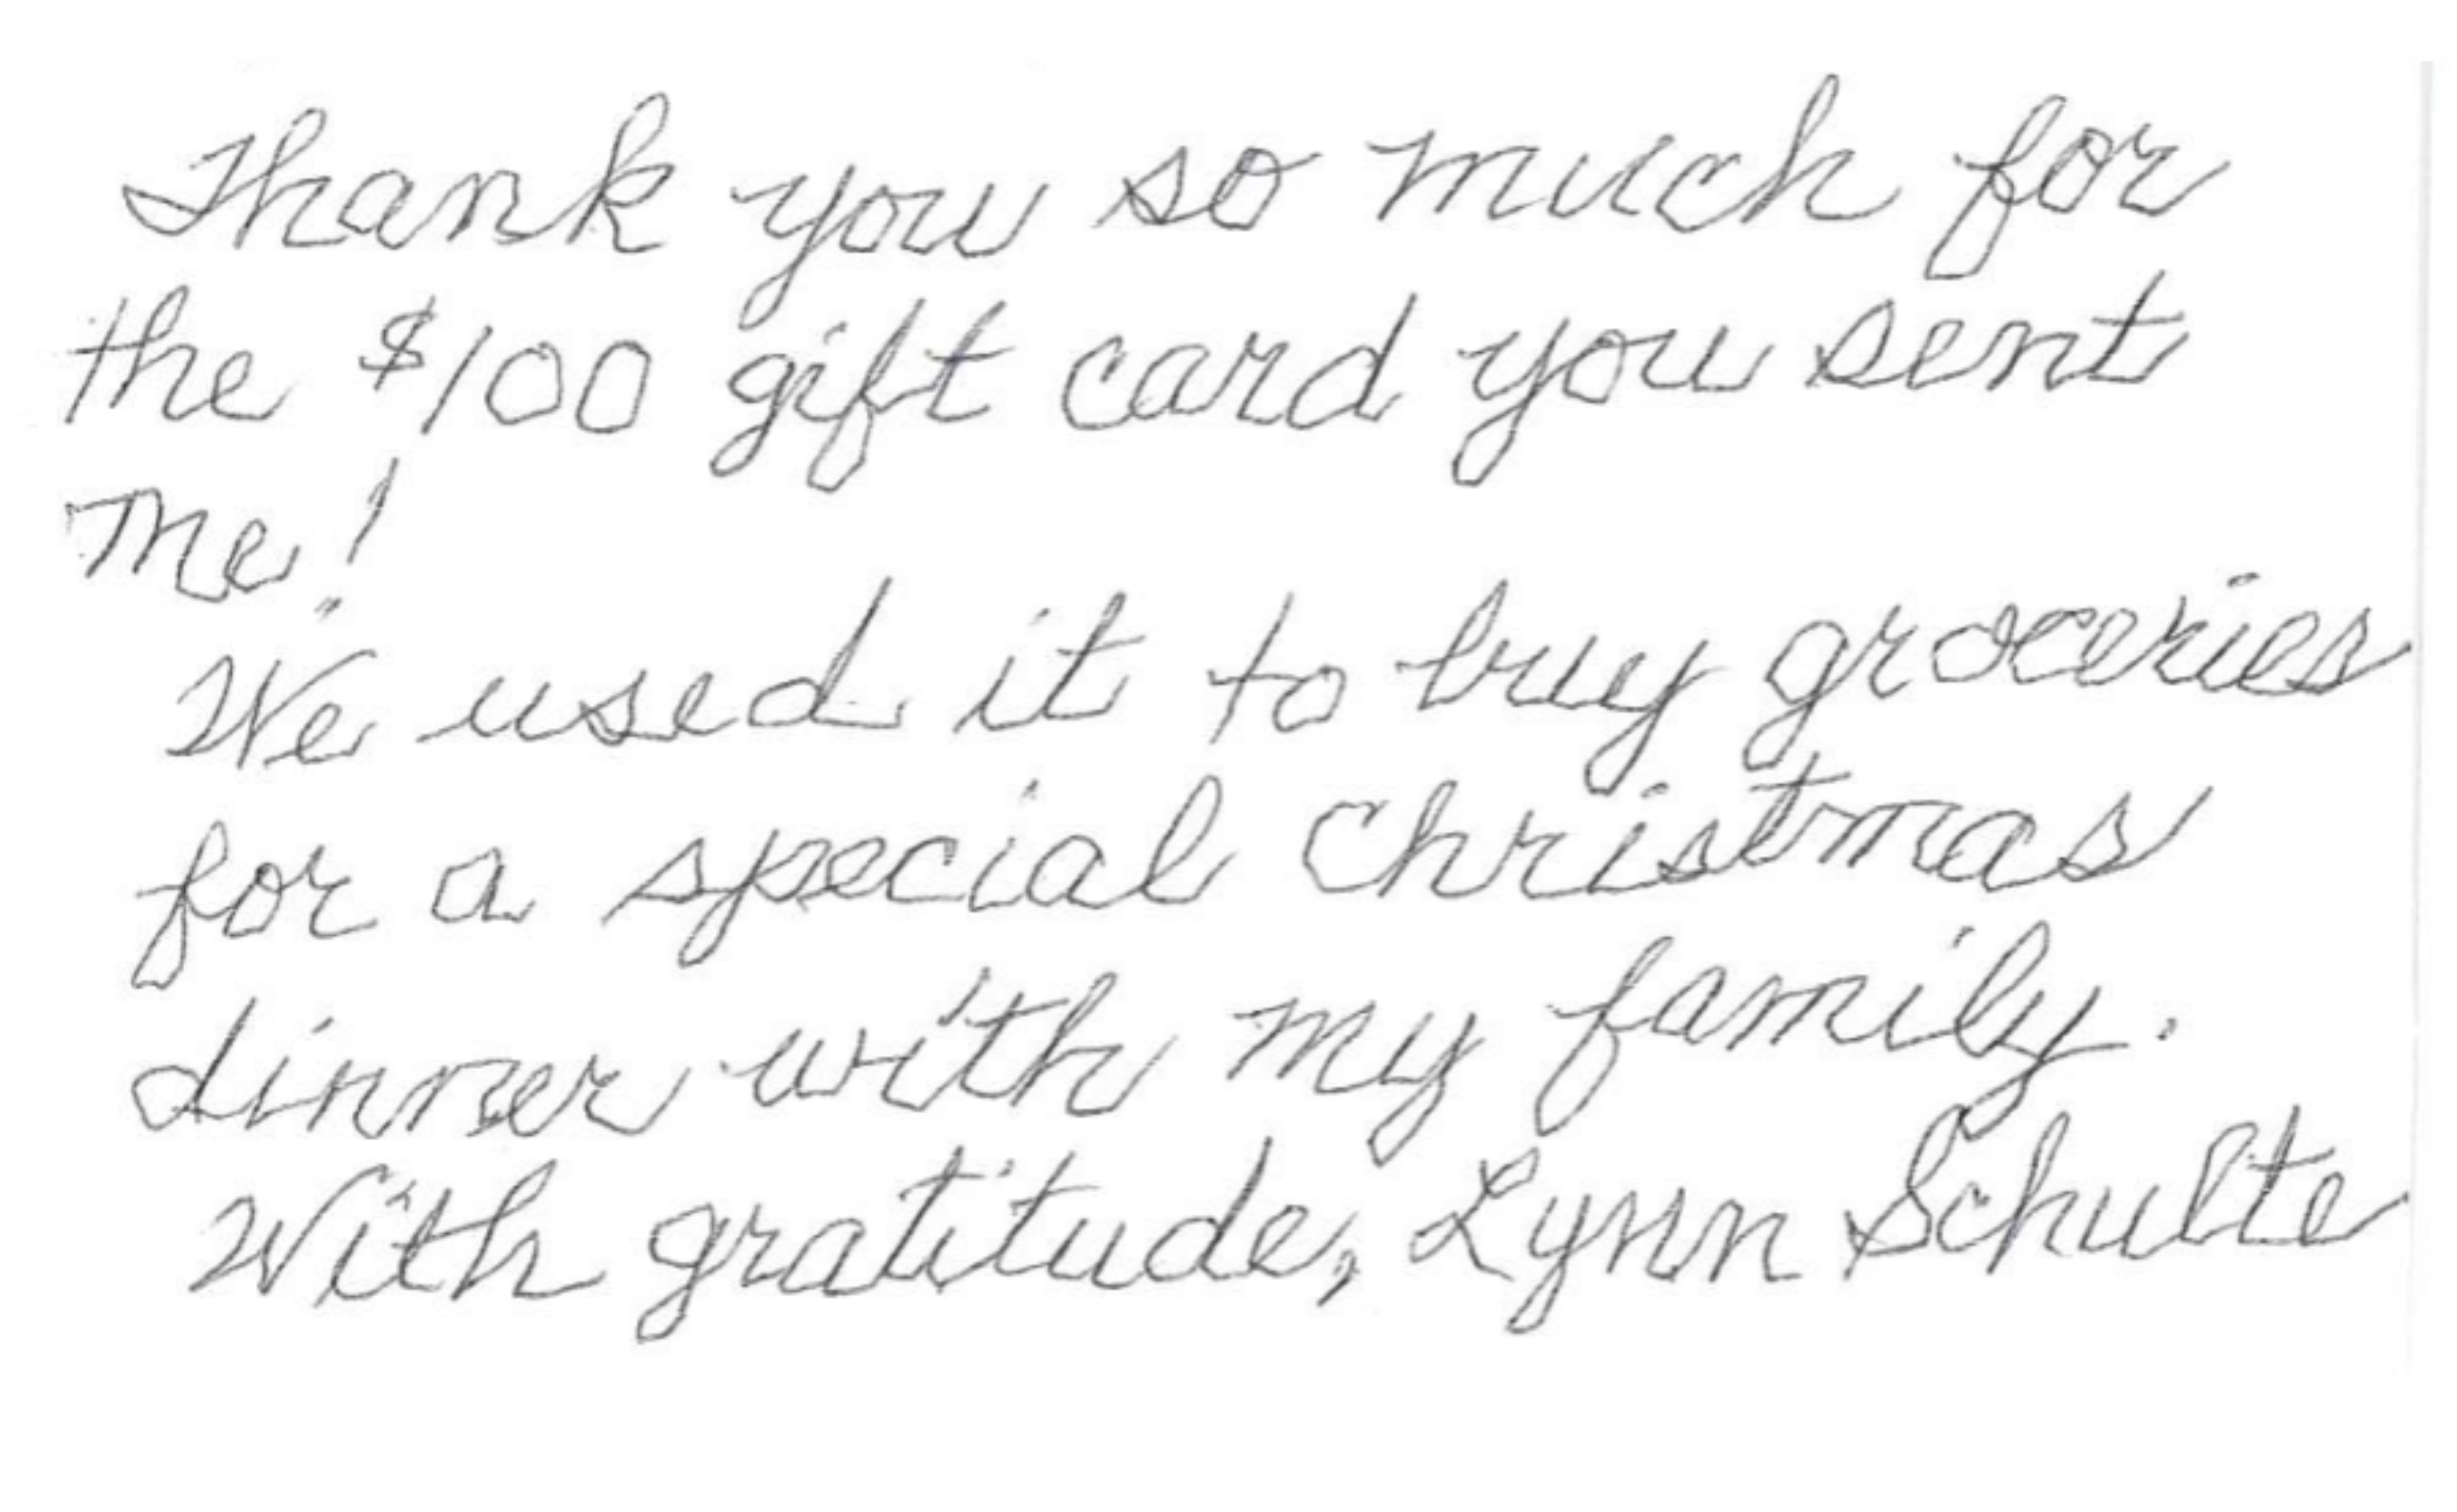 Thank you so much for
the $100 gift card you sent
me!
We used it to buy groceries
for a special Christmas
dinner with my family.
With gratitude, Lynn Schulte